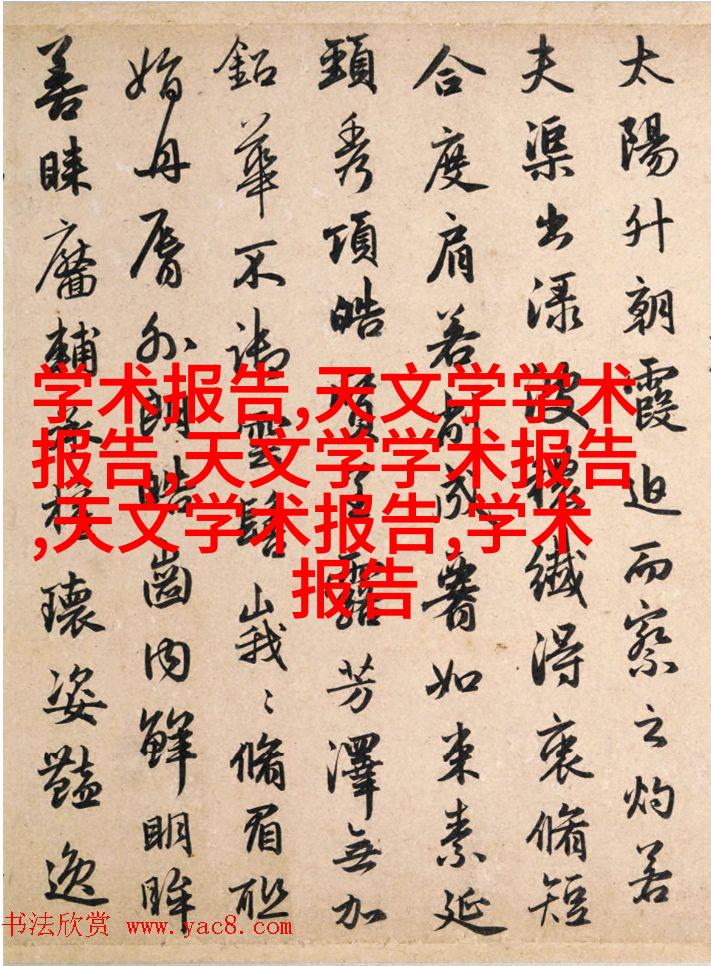 太陽升朝霞迫而察之灼若
夫渠出渌波穠纖得衷脩短
合度肩若削成署如束素延
頸秀項皓質呈露芳澤無加
鉛華不御雲髻峩〻脩眉聯
娟丹脣外朗皓齒内鮮明眸
善睞靨輔承權瓌姿豔逸
学术报告,天文学学术
报告,天文学学术报告
,天文学术报告,学术
报告
书法欣赏 www.yac8.com